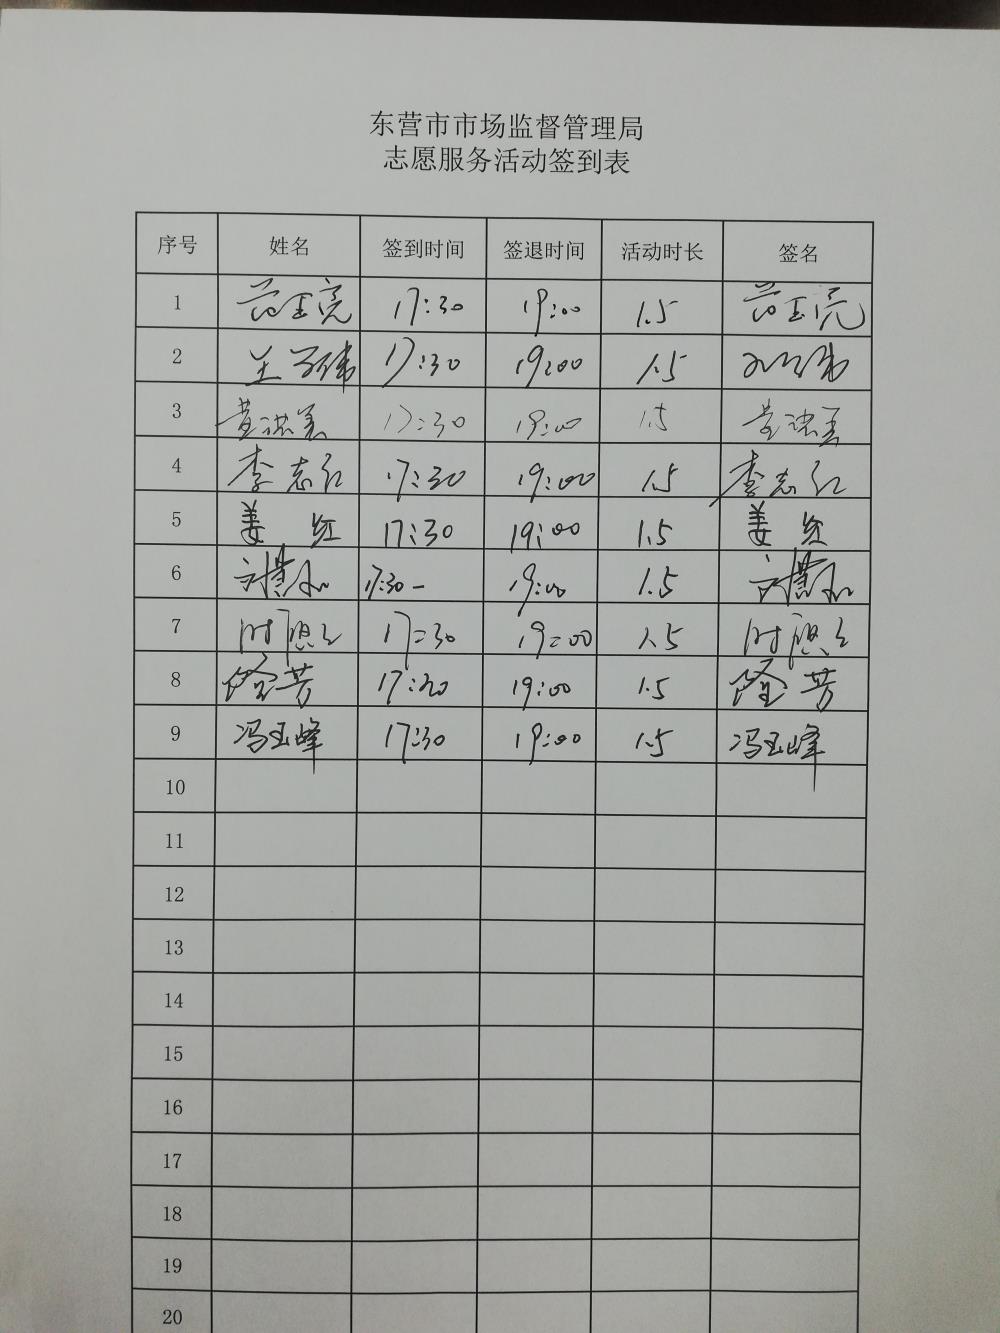 东营市市场监督管理局
志愿服务活动签到表
序号 姓名 签到时间 签退时间 活动时长 签名
1 17:30 19:00 1.5
2 17:30 19:00 1.5
3 17:30 19:00 1.5
4 李志红 17:30 19:00 1.5 李志红
5 姜红 17:30 19:00 1.5 姜红
6 17:30 19:00 1.5
7 17:30 19:00 1.5
8 17:30 19:00 1.5
9 冯玉峰 17:30 19:00 1.5 冯玉峰
10
11
12
13
14
15
16
17
18
19
20